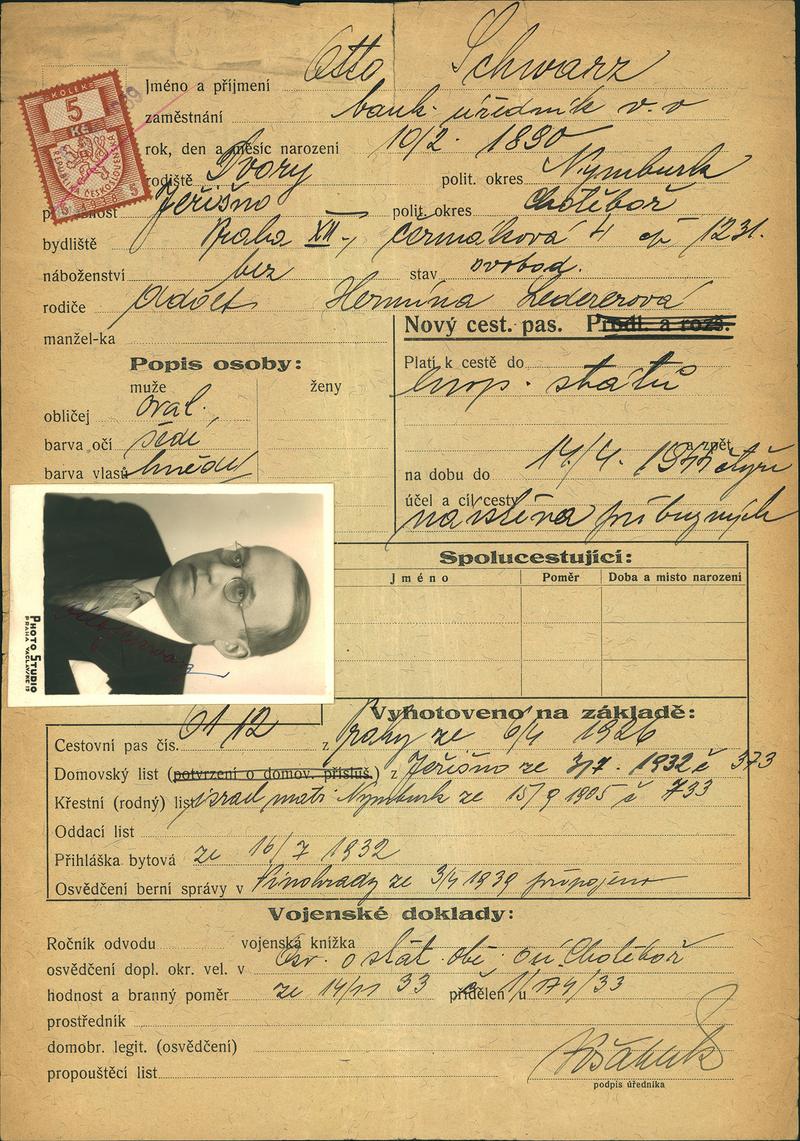 Jméno a příjmení Otto Schwarz
KOLEK
5
Kč
REPUBLIKA ČESKOSLOVENSKÁ
5 1938 5
zaměstnání bank. úředník v. v
rok, den a měsíc narození 10/2. 1890
rodiště Dvory polit. okres Nymburk
Jeřišno polit. okres Chotěboř
bydliště Praha XII., Čermákova 4 čp 1231.
náboženství bez stav svobod.
rodiče Adolf Hermína Ledererova
manžel-ka
Nový cest. pas. Prodl. a rozš.
Popis osoby:
Platí k cestě do
muže ženy
evrop. států
obličej oval.
barva očí šedé
a zpět
barva vlasů hnědé
na dobu do 14/4. čtyři
účel a cíl cesty
návštěva příbuzných
PHOTO STUDIO
PRAHA VÁCLAVSKÉ
Spolucestující:
Jméno Poměr Doba a místo narození
Vyhotoveno na základě:
Cestovní pas čís. 6112 z Prahy ze 6/4 1926
Domovský list (potvrzení o domov. přísluš.) z Jeřišno ze 7. 1932 č 373
Křestní (rodný) list israel matr Nymburk ze 15/9 1905 č 733
Oddací list
Přihláška bytová ze 16/7 1932
Osvědčení berní správy v Vinohrady ze 3/4 1939 připojeno
Vojenské doklady:
Ročník odvodu vojenská knížka
osvědčení dopl. okr. vel. v Osv. o stát. obč. oú. Chotěboř
hodnost a branný poměr ze 14/11 33 přidělen u č 1/174/33
prostředník
domobr. legit. (osvědčení)
propouštěcí list
podpis úředníka